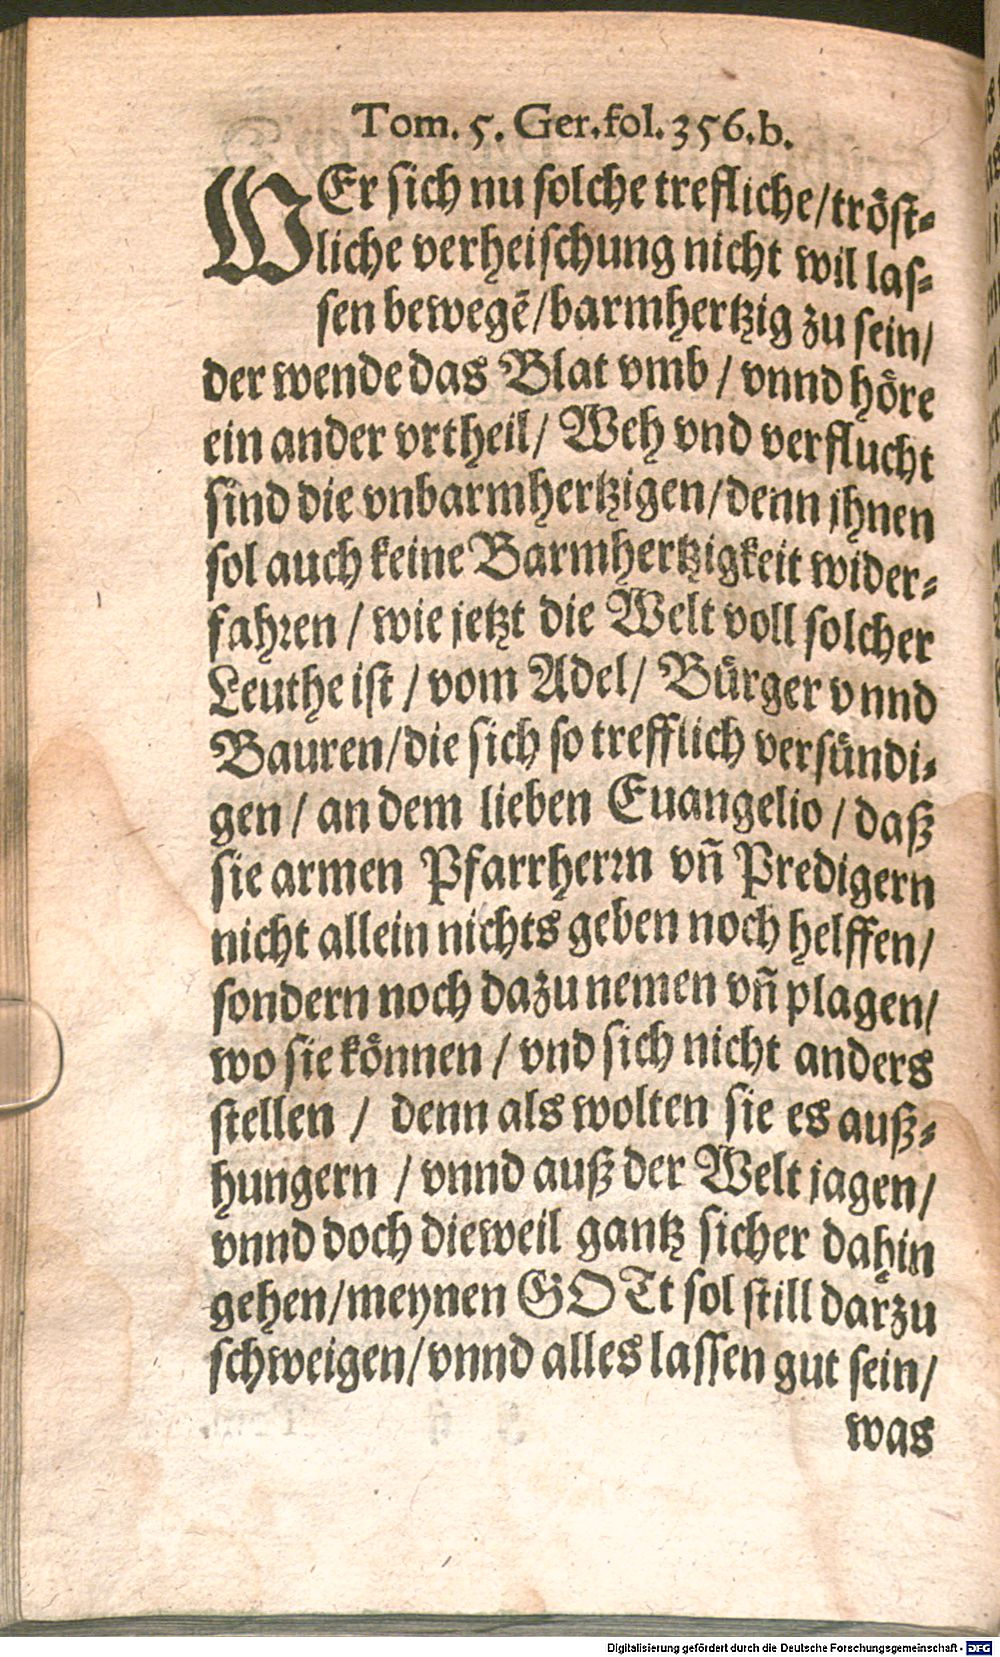 Tom. 5. Ger. fol. 356. b.
WEr sich nu solche trefliche/ tröst-
liche verheischung nicht wil las-
sen bewegẽ/ barmhertzig zu sein/
der wende das Blat vmb / vnnd höre
ein ander vrtheil/ Weh vnd verflucht
sind die vnbarmhertzigen/ denn jhnen
sol auch keine Barmhertzigkeit wider-
fahren / wie jetzt die Welt voll solcher
Leuthe ist / vom Adel/ Bürger vnnd
Bauren/ die sich so trefflich versündi-
gen / an dem lieben Euangelio / daß
sie armen Pfarrherrn vñ Predigern
nicht allein nichts geben noch helffen/
sondern noch dazu nemen vñ plagen/
wo sie können / vnd sich nicht anders
stellen / denn als wolten sie es auß-
hungern / vnnd auß der Welt jagen/
vnnd doch dieweil gantz sicher dahin
gehen/ meynen GOTt sol still darzu
schweigen/ vnnd alles lassen gut sein/
was
Digitalisierung gefördert durch die Deutsche Forschungsgemeinschaft - DFG